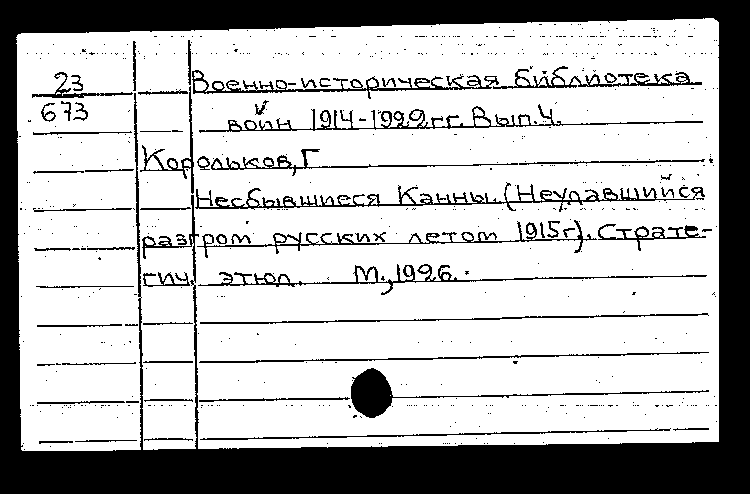 23
673
Военно-историческая библиотека
войн 1914-1922гг. Вып.4.
Корольков, Г
Несбывшиеся Канны. (Неудавшийся
разгром русских летом 1915г). Страте-
гич. этюд. М., 1926.